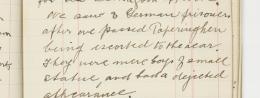 We saw 3 German prisoners
after we passed Poperinghen
being escorted to the rear.
They were mere boys of small
statue, and had a dejected
appearance.